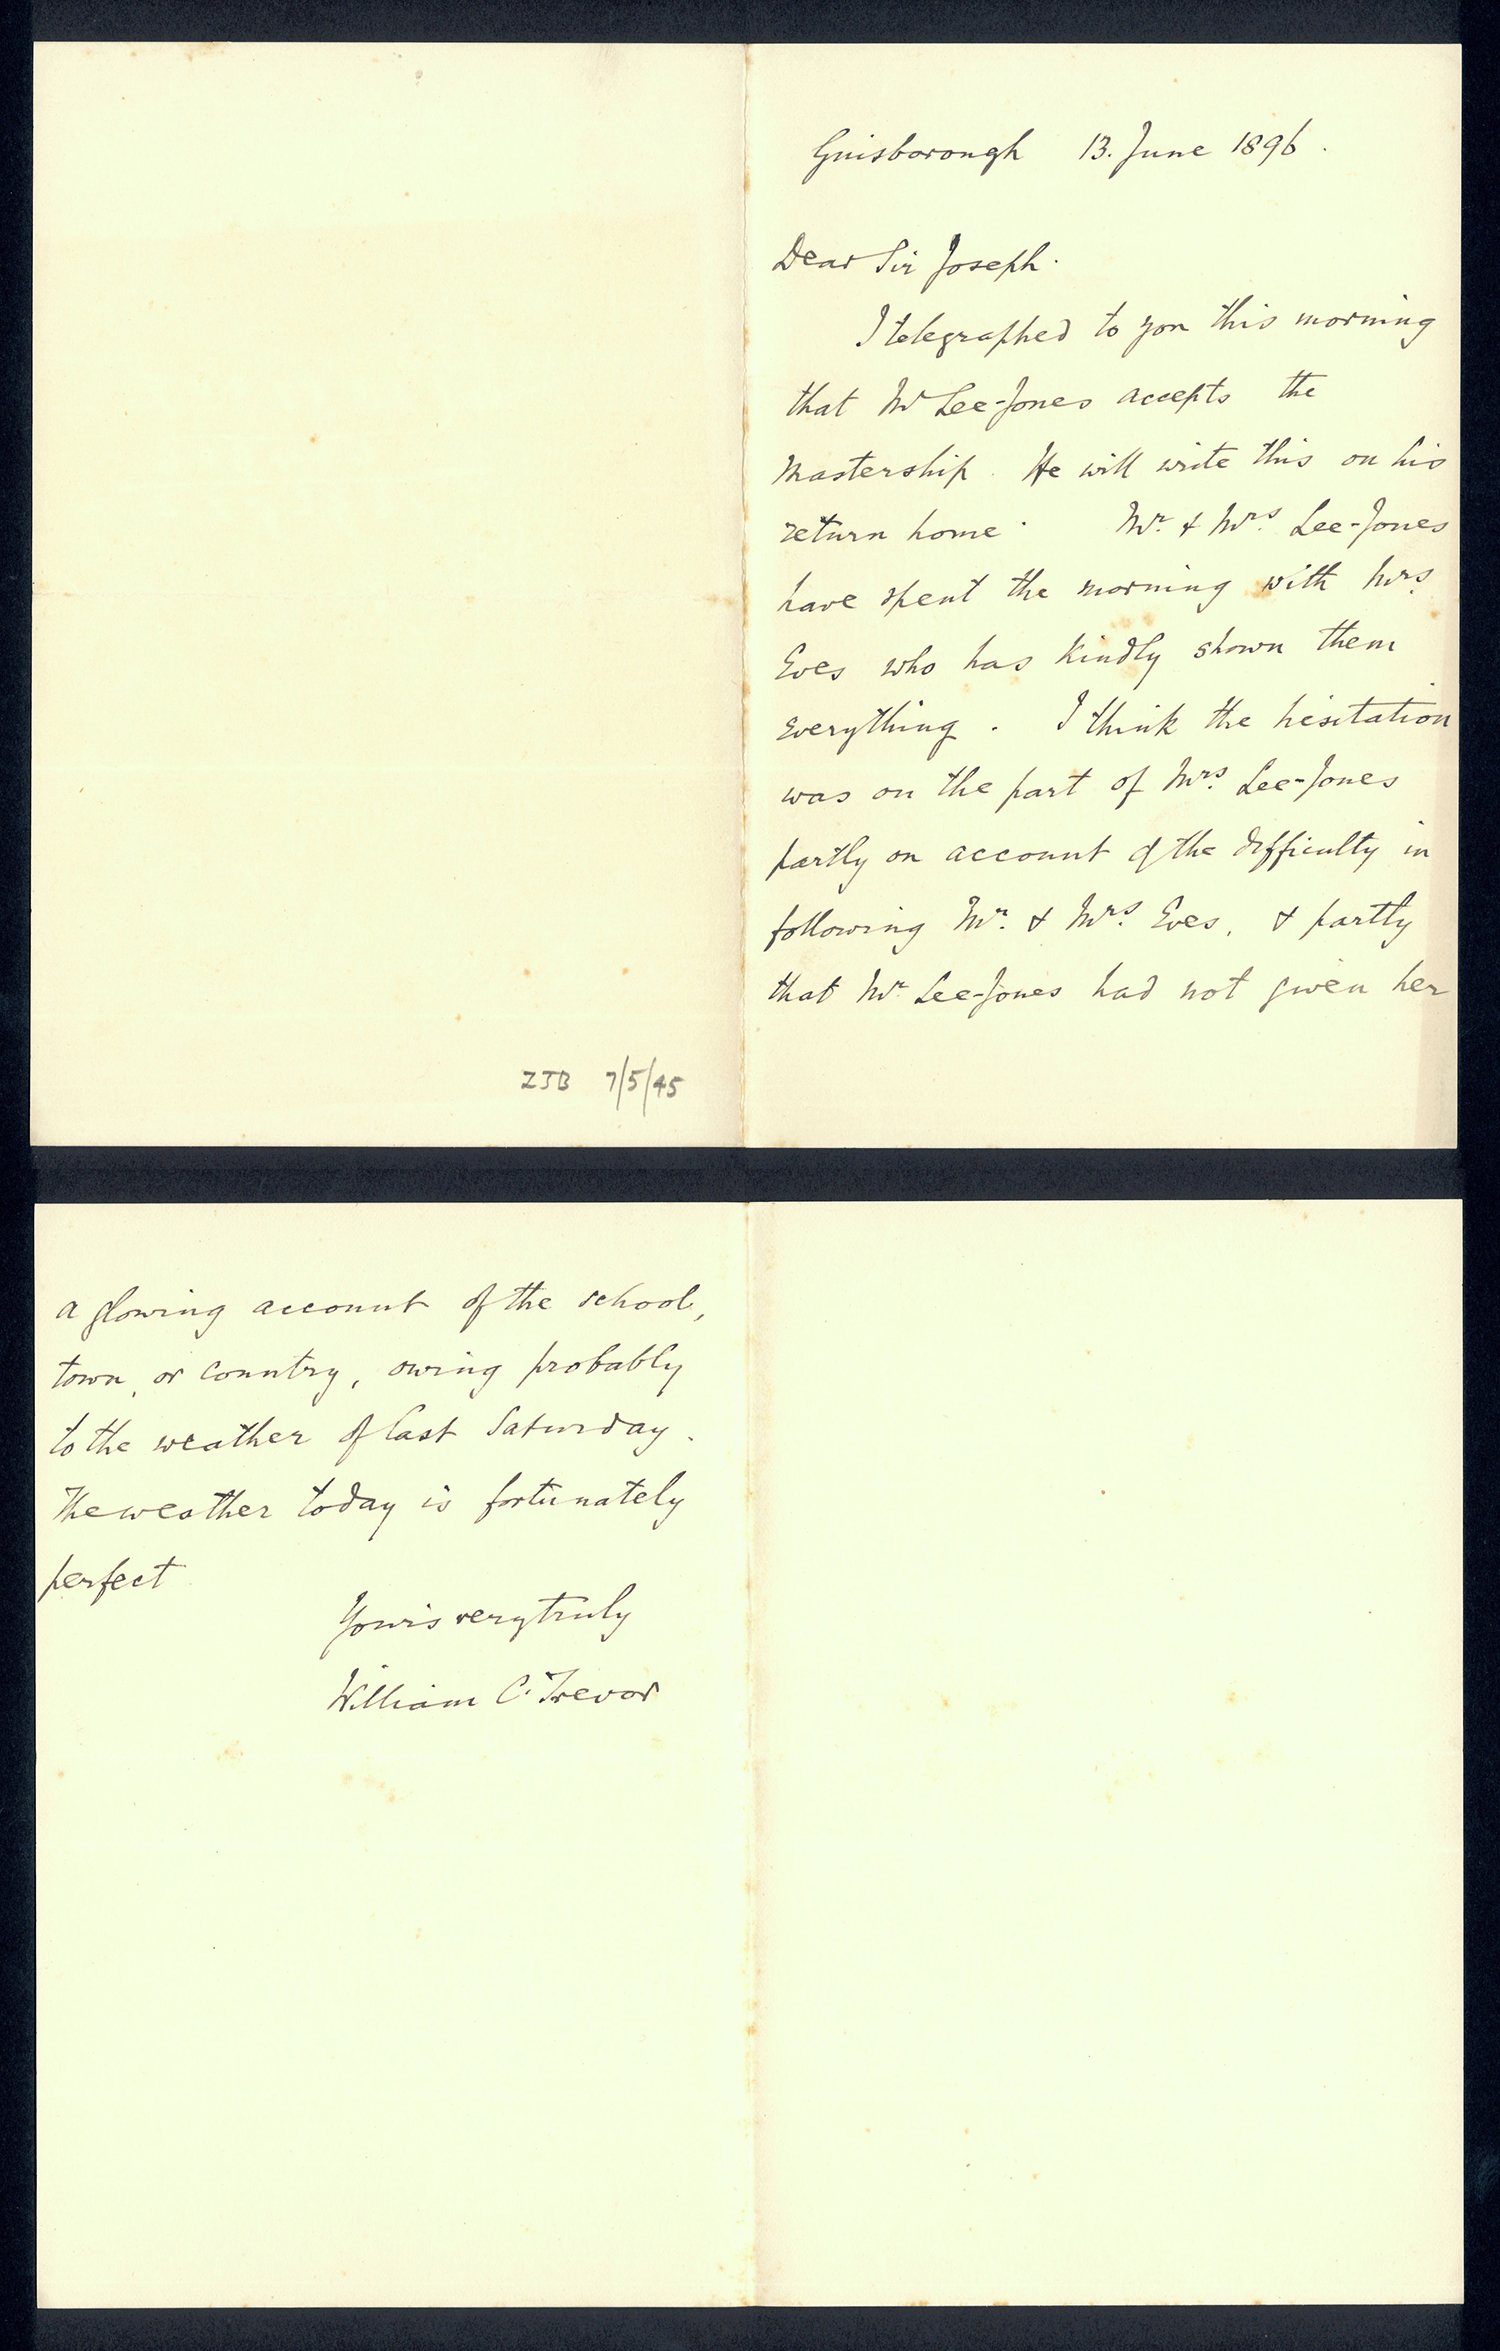 Guisborough 13. June 1896.
Dear Sir Joseph.
I telegraphed to you this morning
that Mr Lee-Jones accepts the
Mastership. He will write this on his
return home. Mr. & Mrs. Lee-Jones
have spent the morning with Mrs.
Eves who has kindly shown them
everything. I think the hesitation
was on the part of Mrs. Lee-Jones
partly on account of the difficulty in
following Mr. & Mrs. Eves, & partly
that Mr. Lee-Jones had not given her
ZJB 7/5/45
a glowing account of the school,
town, or country, owing probably
to the weather of last Saturday.
The weather today is fortunately
perfect
Yours very truly
William C. Trevor